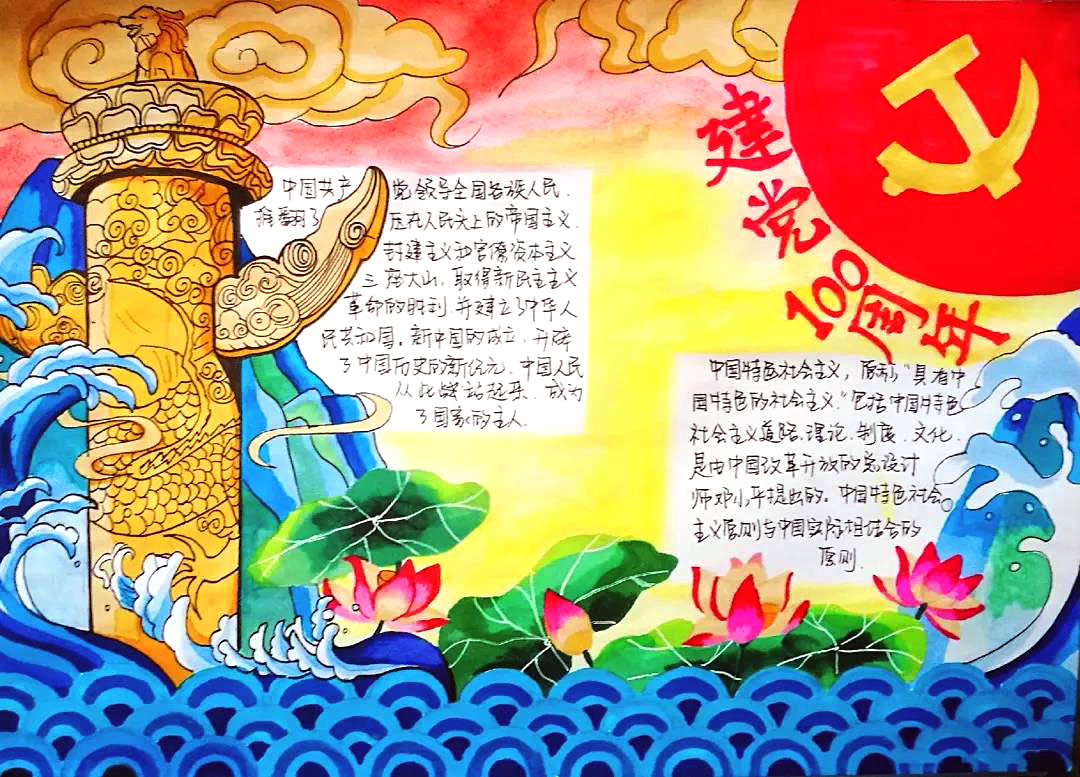 建党100周年
中国共产党领导全国各族人民.
推翻了压在人民头上的帝国主义.
封建主义和官僚资本主义
三座大山,取得新民主主义
革命的胜利.并建立了中华人
民共和国。新中国的成立.开辟
了中国历史的新纪元.中国人民
从此站起来.成为
了国家的主人.
中国特色社会主义，原称"具有中
国特色的社会主义."包括中国特色
社会主义道路.理论.制度.文化.
是由中国改革开放的总设计
师邓小平提出的。中国特色社会
主义原则与中国实际相结合的
原则.